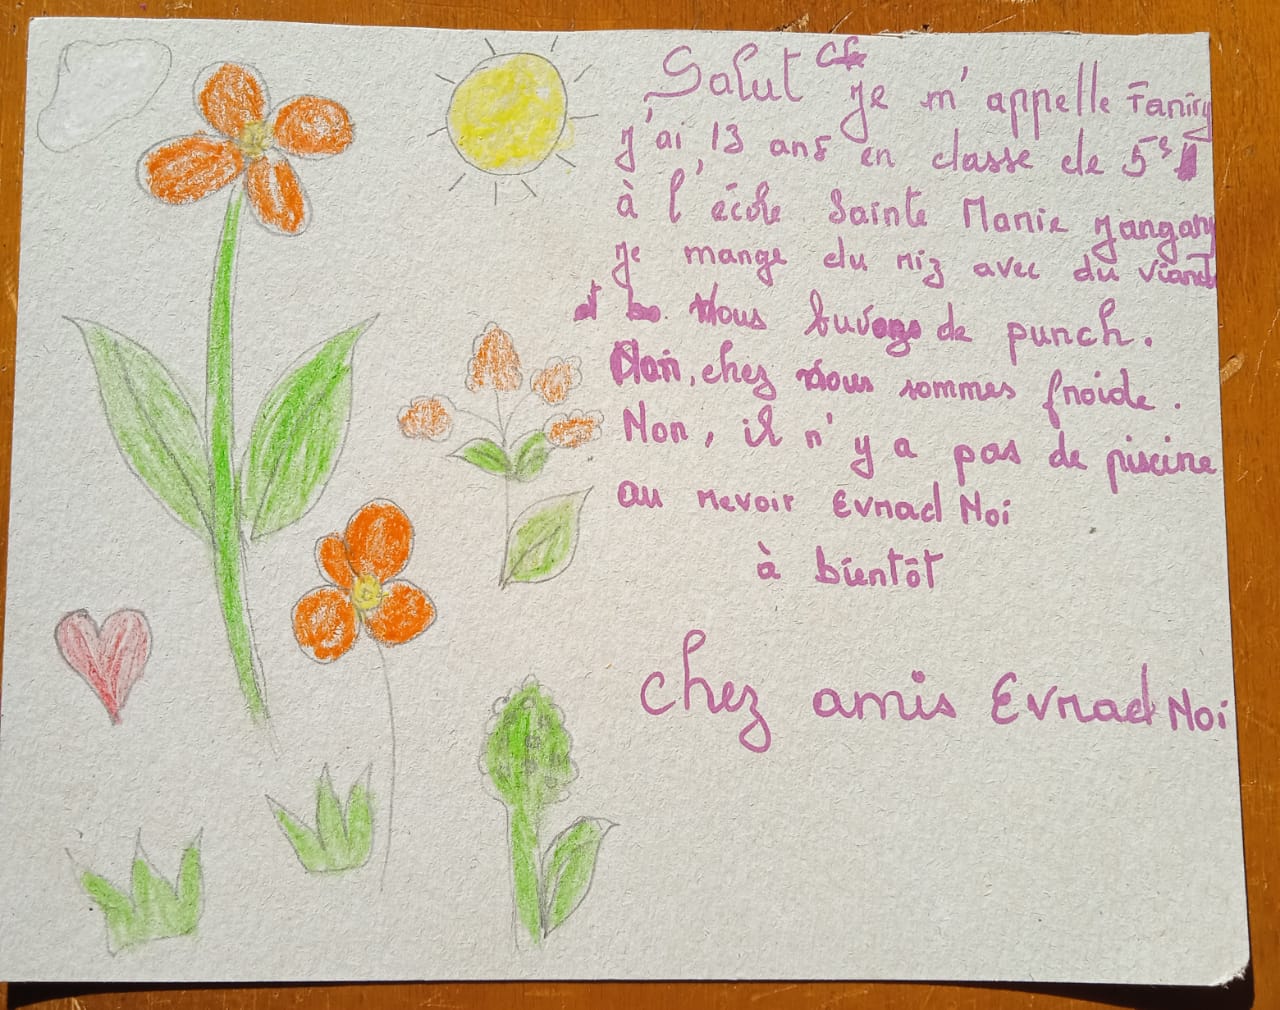 Salut je m'appelle Faniry
j'ai 13 ans en classe de 5è
à l'école Sainte Marie Jangany
je mange du riz avec du viande
Nous buvons de punch.
Non, chez nous sommes froide.
Non, il n'y a pas de piscine
au revoir Evrad Noi
à bientôt
chez amis Evrad Noi